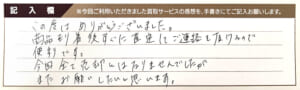 記入欄
※今回ご利用いただきました買取サービスの感想を、手書きにてご記入お願いします。
この度はありがとうございました。
商品到着後すぐに査定してご連絡して頂けたので
便利です。
今回全て売却しはなりませんでしたが
またお願いしたいと思います。